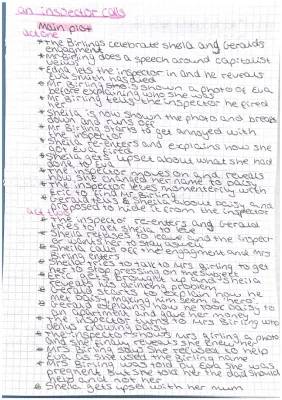 an inspector calls
Main plot
act one
* The Birlings celebrate Sheila and Geralds engagment
* Mr Birling does a speech around capitalist views
* Edna lets the inspector in and he reveals
* Mr Birling is shown a photo of Eva before explaining who she was
* Mr Birling tells the inspector he fired her
* Sheila is now shown the photo and breaks down and runs out
* Mr Birling starts to get annoyed with the inspector
* Sheila re-enters and explains how she got Eva fired
* Sheila gets upset about what she had
* The inspector moves on and reveals how Eva changed her name to Daisy
* The inspector leaves momenterily with
* Gerald tells Sheila about Daisy and
to hide it from the inspector
act two
* The inspector re-enters and Gerald tries to get Sheila to leave
* Sheila refuses to leave and the inspector wanted her to stay aswell
* Sheila calls off the engagment and Mrs Birling enters
* Sheila tries to talk to Mrs Birling to get her to stop pressing on the subject
* Eric is brought up and Sheila reveals his drinking problem
* Gerald starts to explain how he met Daisy making him seem a hero
* how he took Daisy to an apartment and gave her money
* The inspector moves on to Mrs Birling who denys knowing Daisy
* The inspector shows Mrs Birling a photo and she finaly reveals she knew her
* Mrs Birling said she refused to help Eva as she used the Birling name
* Mrs Birling was told by Eva she was pregnent but she told her the dad should help and not her
* Sheila gets upset with her mum